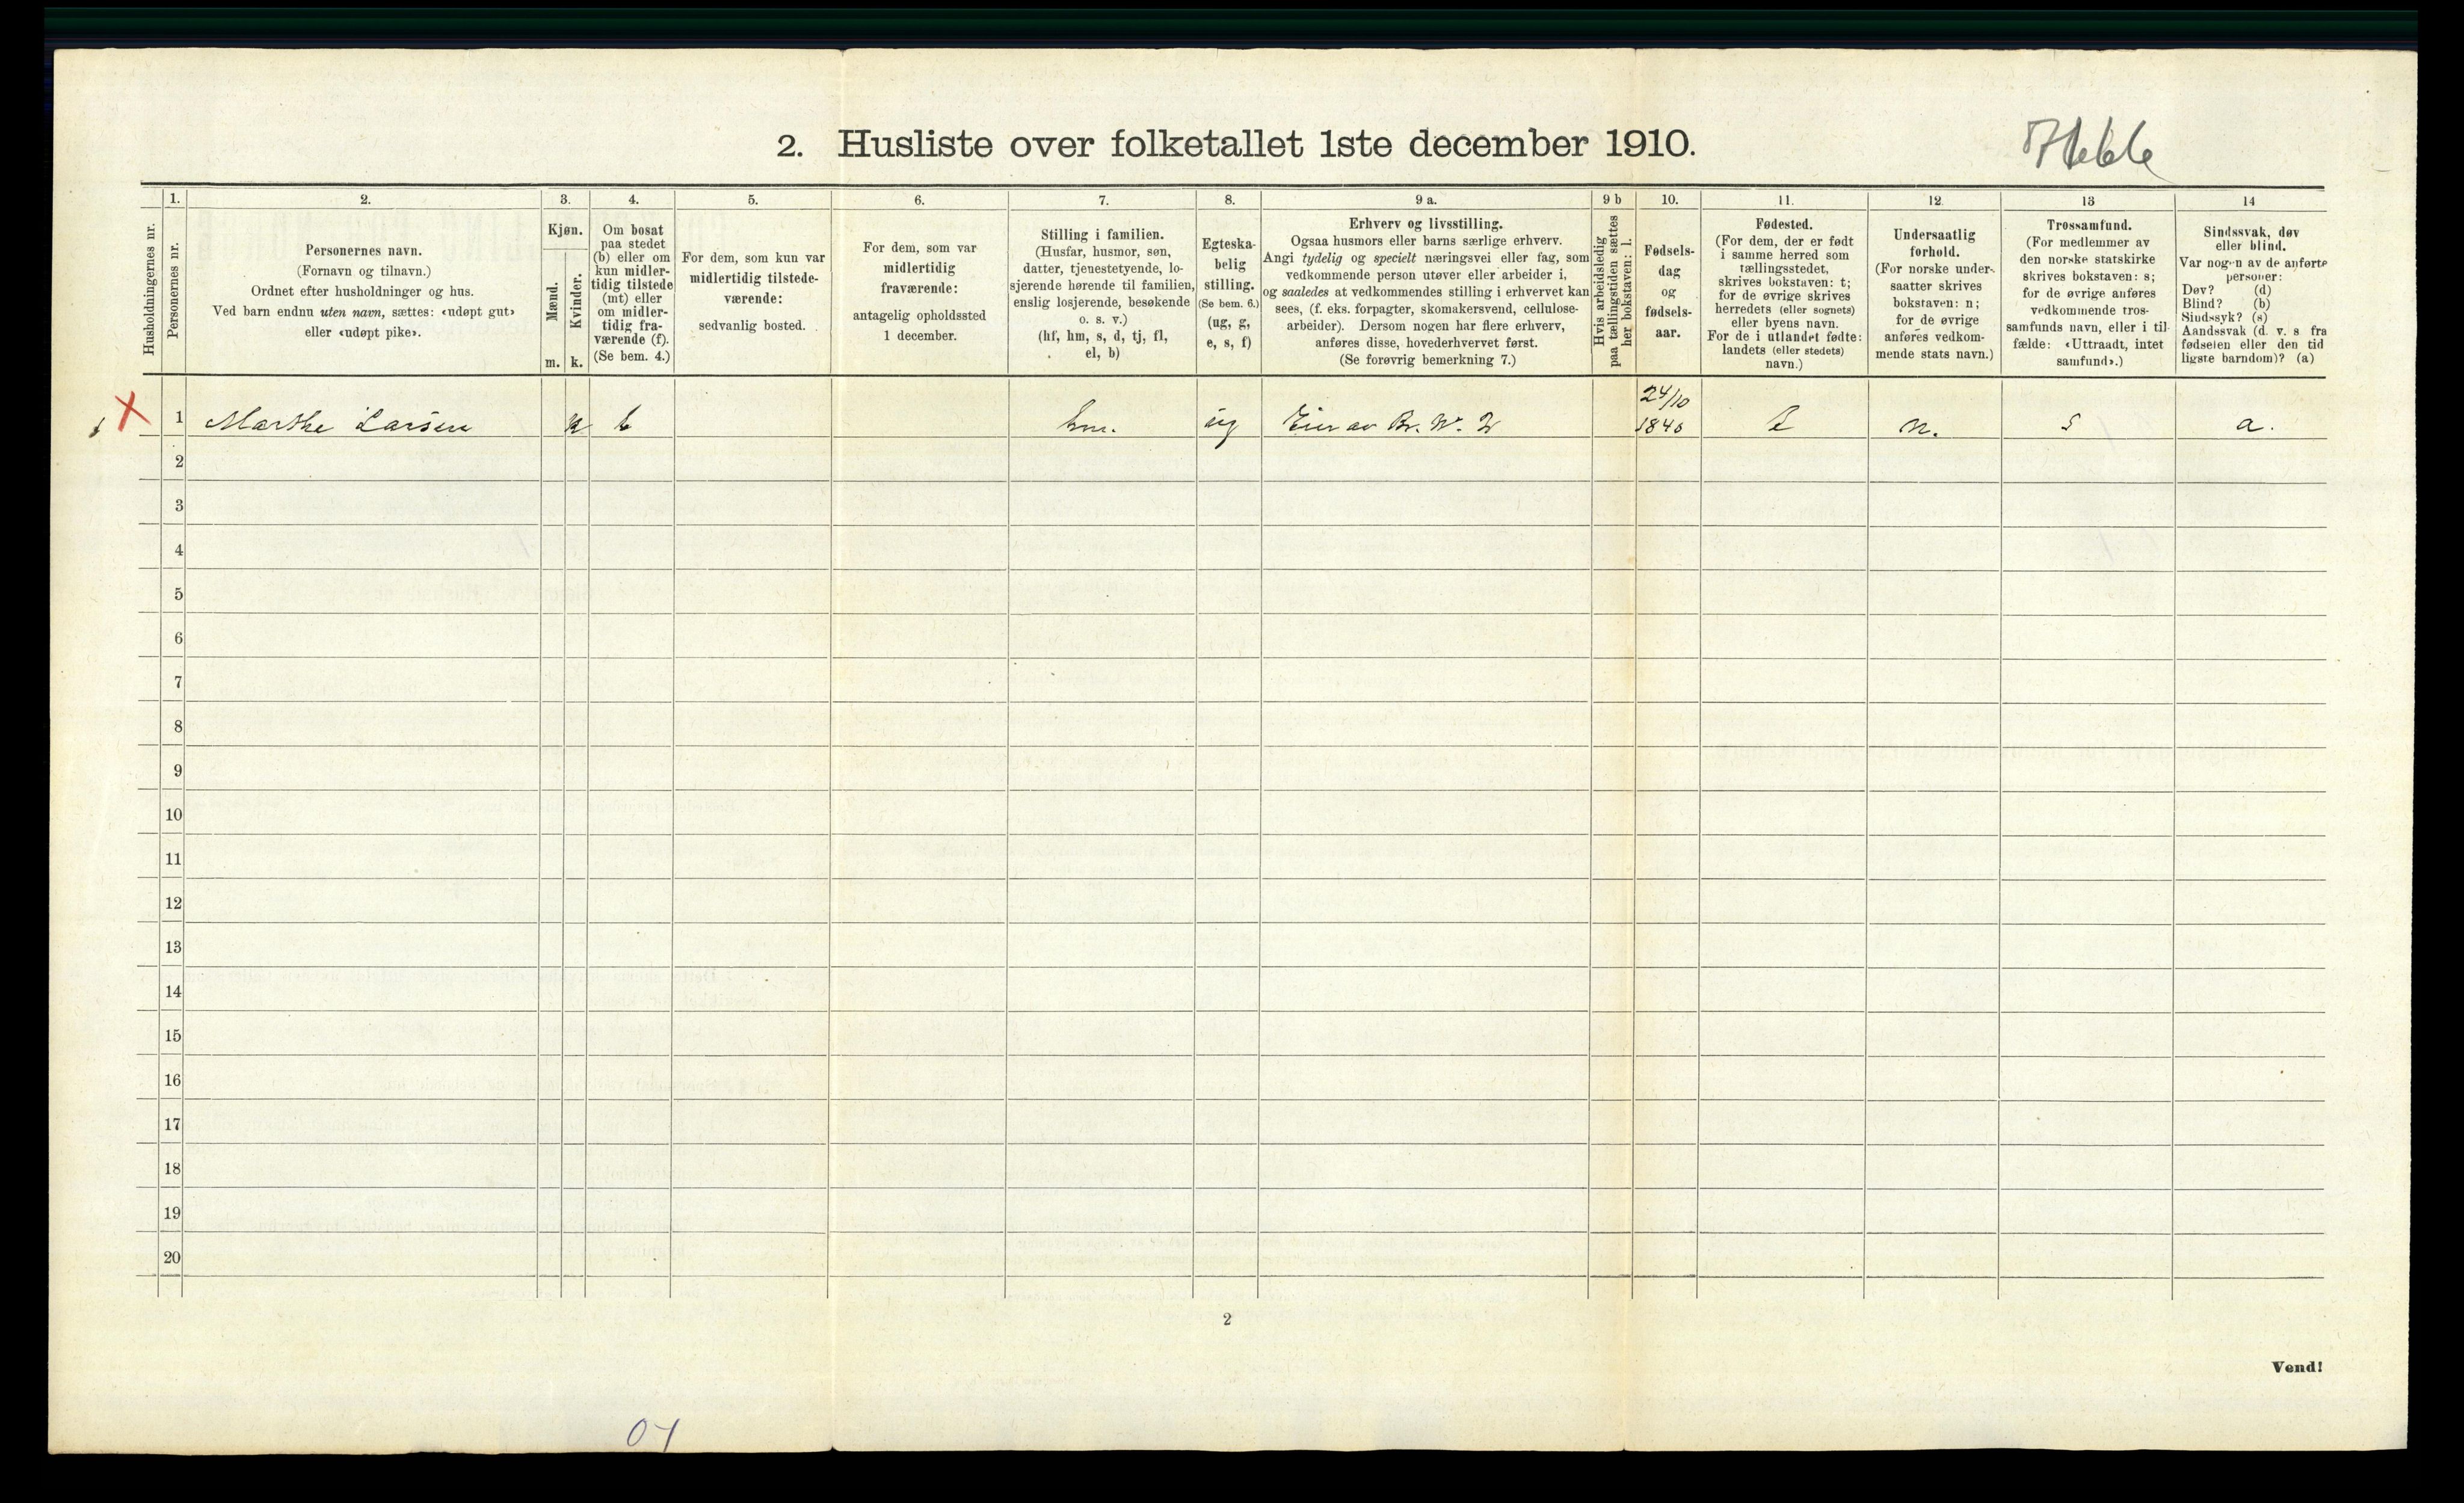 2. Husliste over folketallet 1ste december 1910.
Husholdningernes nr.
1.
Personernes nr.
2.
Personernes navn.
(Fornavn og tilnavn.)
Ordnet efter husholdninger og hus.
Ved barn endnu uten navn, sættes: «udøpt gut»
eller «udøpt pike».
3.
Kjøn.
Mænd.
Kvinder.
m. k.
4.
Om bosat
paa stedet
(b) eller om
kun midler-
tidig tilstede
(mt) eller
om midler-
tidig fra-
værende (f).
(Se bem. 4.)
5.
For dem, som kun var
midlertidig tilstede-
værende:
sedvanlig bosted.
6.
For dem, som var
midlertidig
fraværende:
antagelig opholdssted
1 december.
7.
Stilling i familien.
(Husfar, husmor, søn,
datter, tjenestetyende, lo-
sjerende hørende til familien,
enslig losjerende, besøkende
o. s. v.)
(hf, hm, s, d, tj, fl,
el, b)
8.
Egteska-
belig
stilling.
(Se bem. 6.)
(ug, g,
e, s, f)
9 a.
Erhverv og livsstilling.
Ogsaa husmors eller barns særlige erhverv.
Angi tydelig og specielt næringsvei eller fag, som
vedkommende person utøver eller arbeider i,
og saaledes at vedkommendes stilling i erhvervet kan
sees, (f. eks. forpagter, skomakersvend, cellulose-
arbeider). Dersom nogen har flere erhverv,
anføres disse, hovederhvervet først.
(Se forøvrig bemerkning 7.)
9 b
Hvis arbeidsledig
paa tællingstiden sættes
her bokstaven: l.
10.
Fødsels-
dag
og
fødsels-
aar.
11.
Fødested.
(For dem, der er født
i samme herred som
tællingsstedet,
skrives bokstaven: t;
for de øvrige skrives
herredets (eller sognets)
eller byens navn.
For de i utlandet fødte:
landets (eller stedets)
navn.)
12.
Undersaatlig
forhold.
(For norske under-
saatter skrives
bokstaven: n;
for de øvrige
anføres vedkom-
mende stats navn.)
13
Trossamfund.
(For medlemmer av
den norske statskirke
skrives bokstaven: s;
for de øvrige anføres
vedkommende tros-
samfunds navn, eller i til-
fælde: «Uttraadt, intet
samfund».)
14
Sindssvak, døv
eller blind.
Var nogen av de anførte
personer:
Døv? (d)
Blind? (b)
Sindssyk? (s)
Aandssvak (d. v. s. fra
fødselen eller den tid-
ligste barndom)? (a)
1 Marthe Larsen k b hm. ug Eier av Br. N. 24/10 1840 t n. s a.
2
3
4
5
6
7
8
9
10
11
12
13
14
15
16
17
18
19
20
2
Vend!